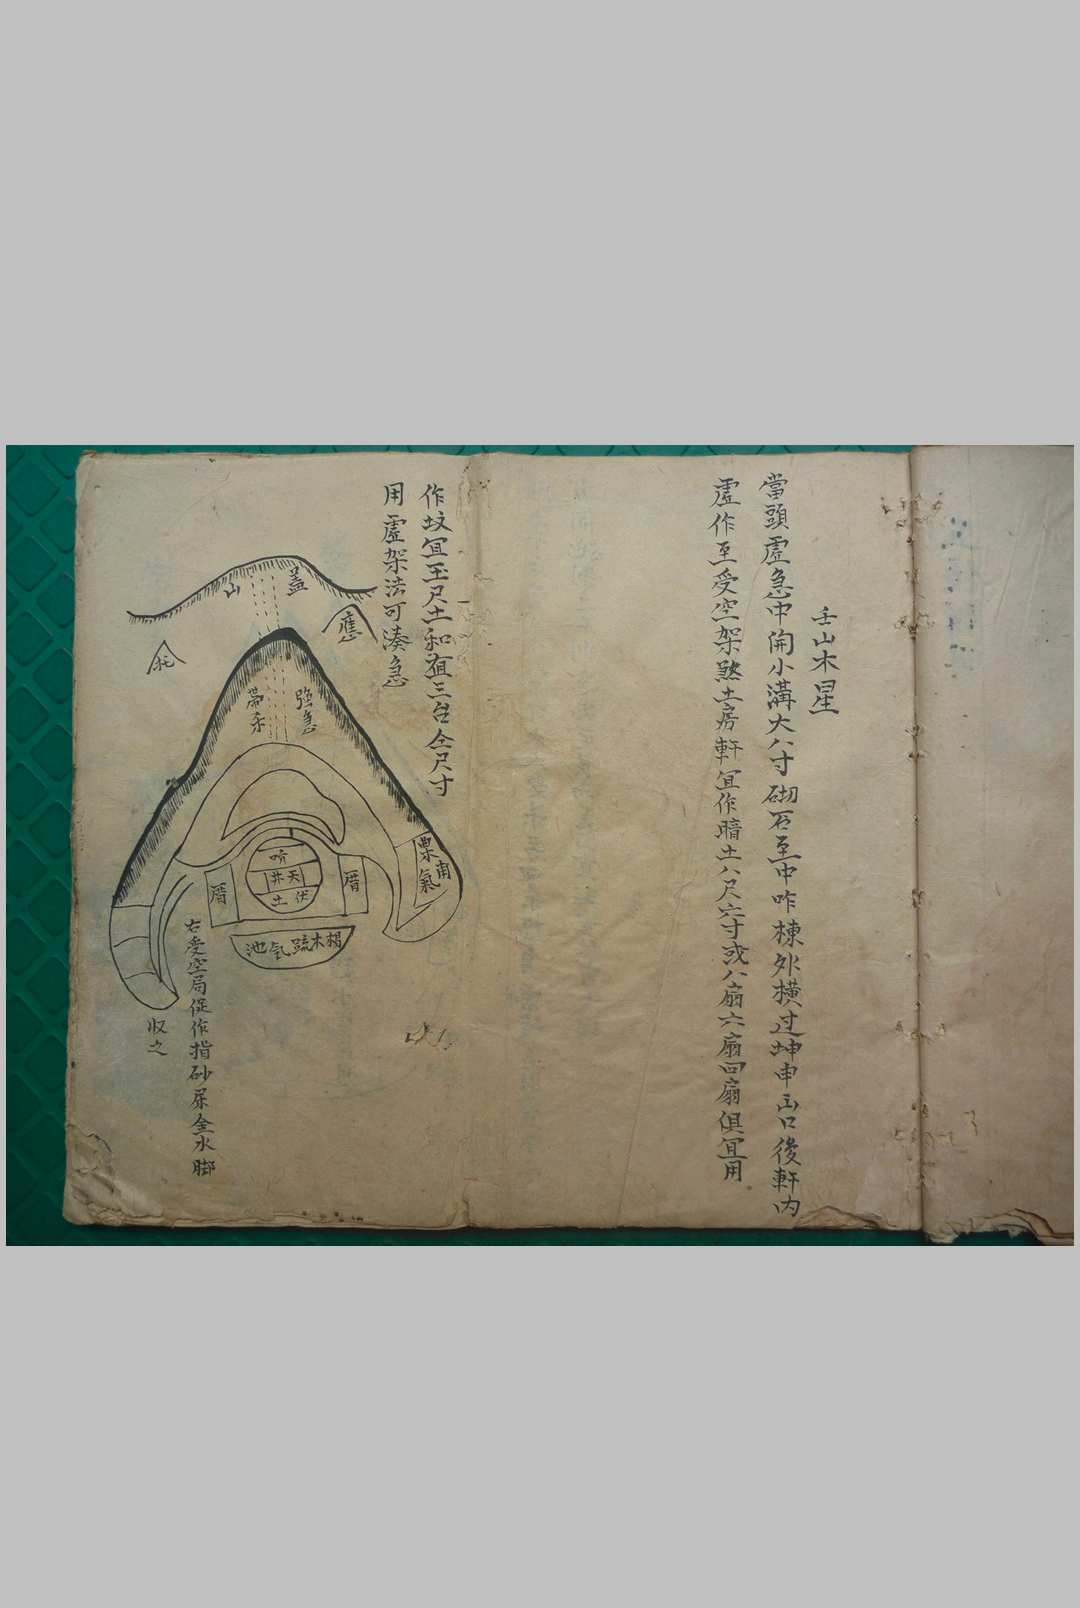 壬山木星
當頭虛急中開小溝大八寸砌石至中咋棟外橫过坤申出口後軒内
虛作至受空架煞土房軒宜作暗土八尺六寸或八扇六扇四扇俱宜用
作坟宜玉尺土和宜三台仝尺寸
用虛架法可湊急
蓋山
應
托
強急
帶乘
南
栗氣
厝
唷
天井
伏土
厝
榻木䟽気池
右受空局促作指砂尿金水脚
収之